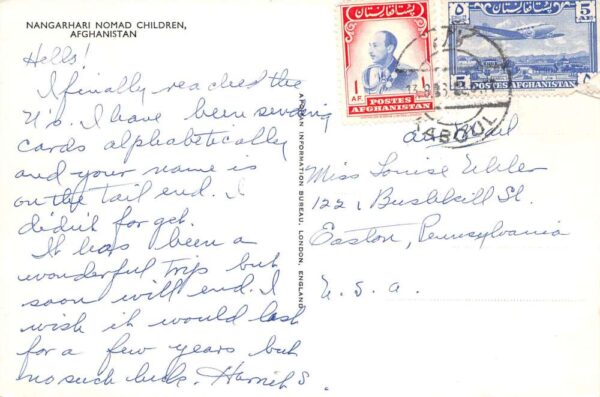 NANGARHARI NOMAD CHILDREN,
AFGHANISTAN
Hello!
I finally reached the
U's. I have been sending
cards alphabetically
and your name is
on the tail end. I
didn't forget.
It has been a
wonderful trip but
soon will end. I
wish it would last
for a few years but
no such luck. Harriet S.
AFGHAN INFORMATION BUREAU, LONDON, ENGLAND
پست افغانستان
1
AF.
۱
POSTES
AFGHANISTAN
پست افغانستان
۵
5
AF
5
۵
POSTES AFGHANISTAN
KABOUL
air mail
Miss Louise Uhler
122, Bushkill St.
Easton, Pennsylvania
U.S.a.